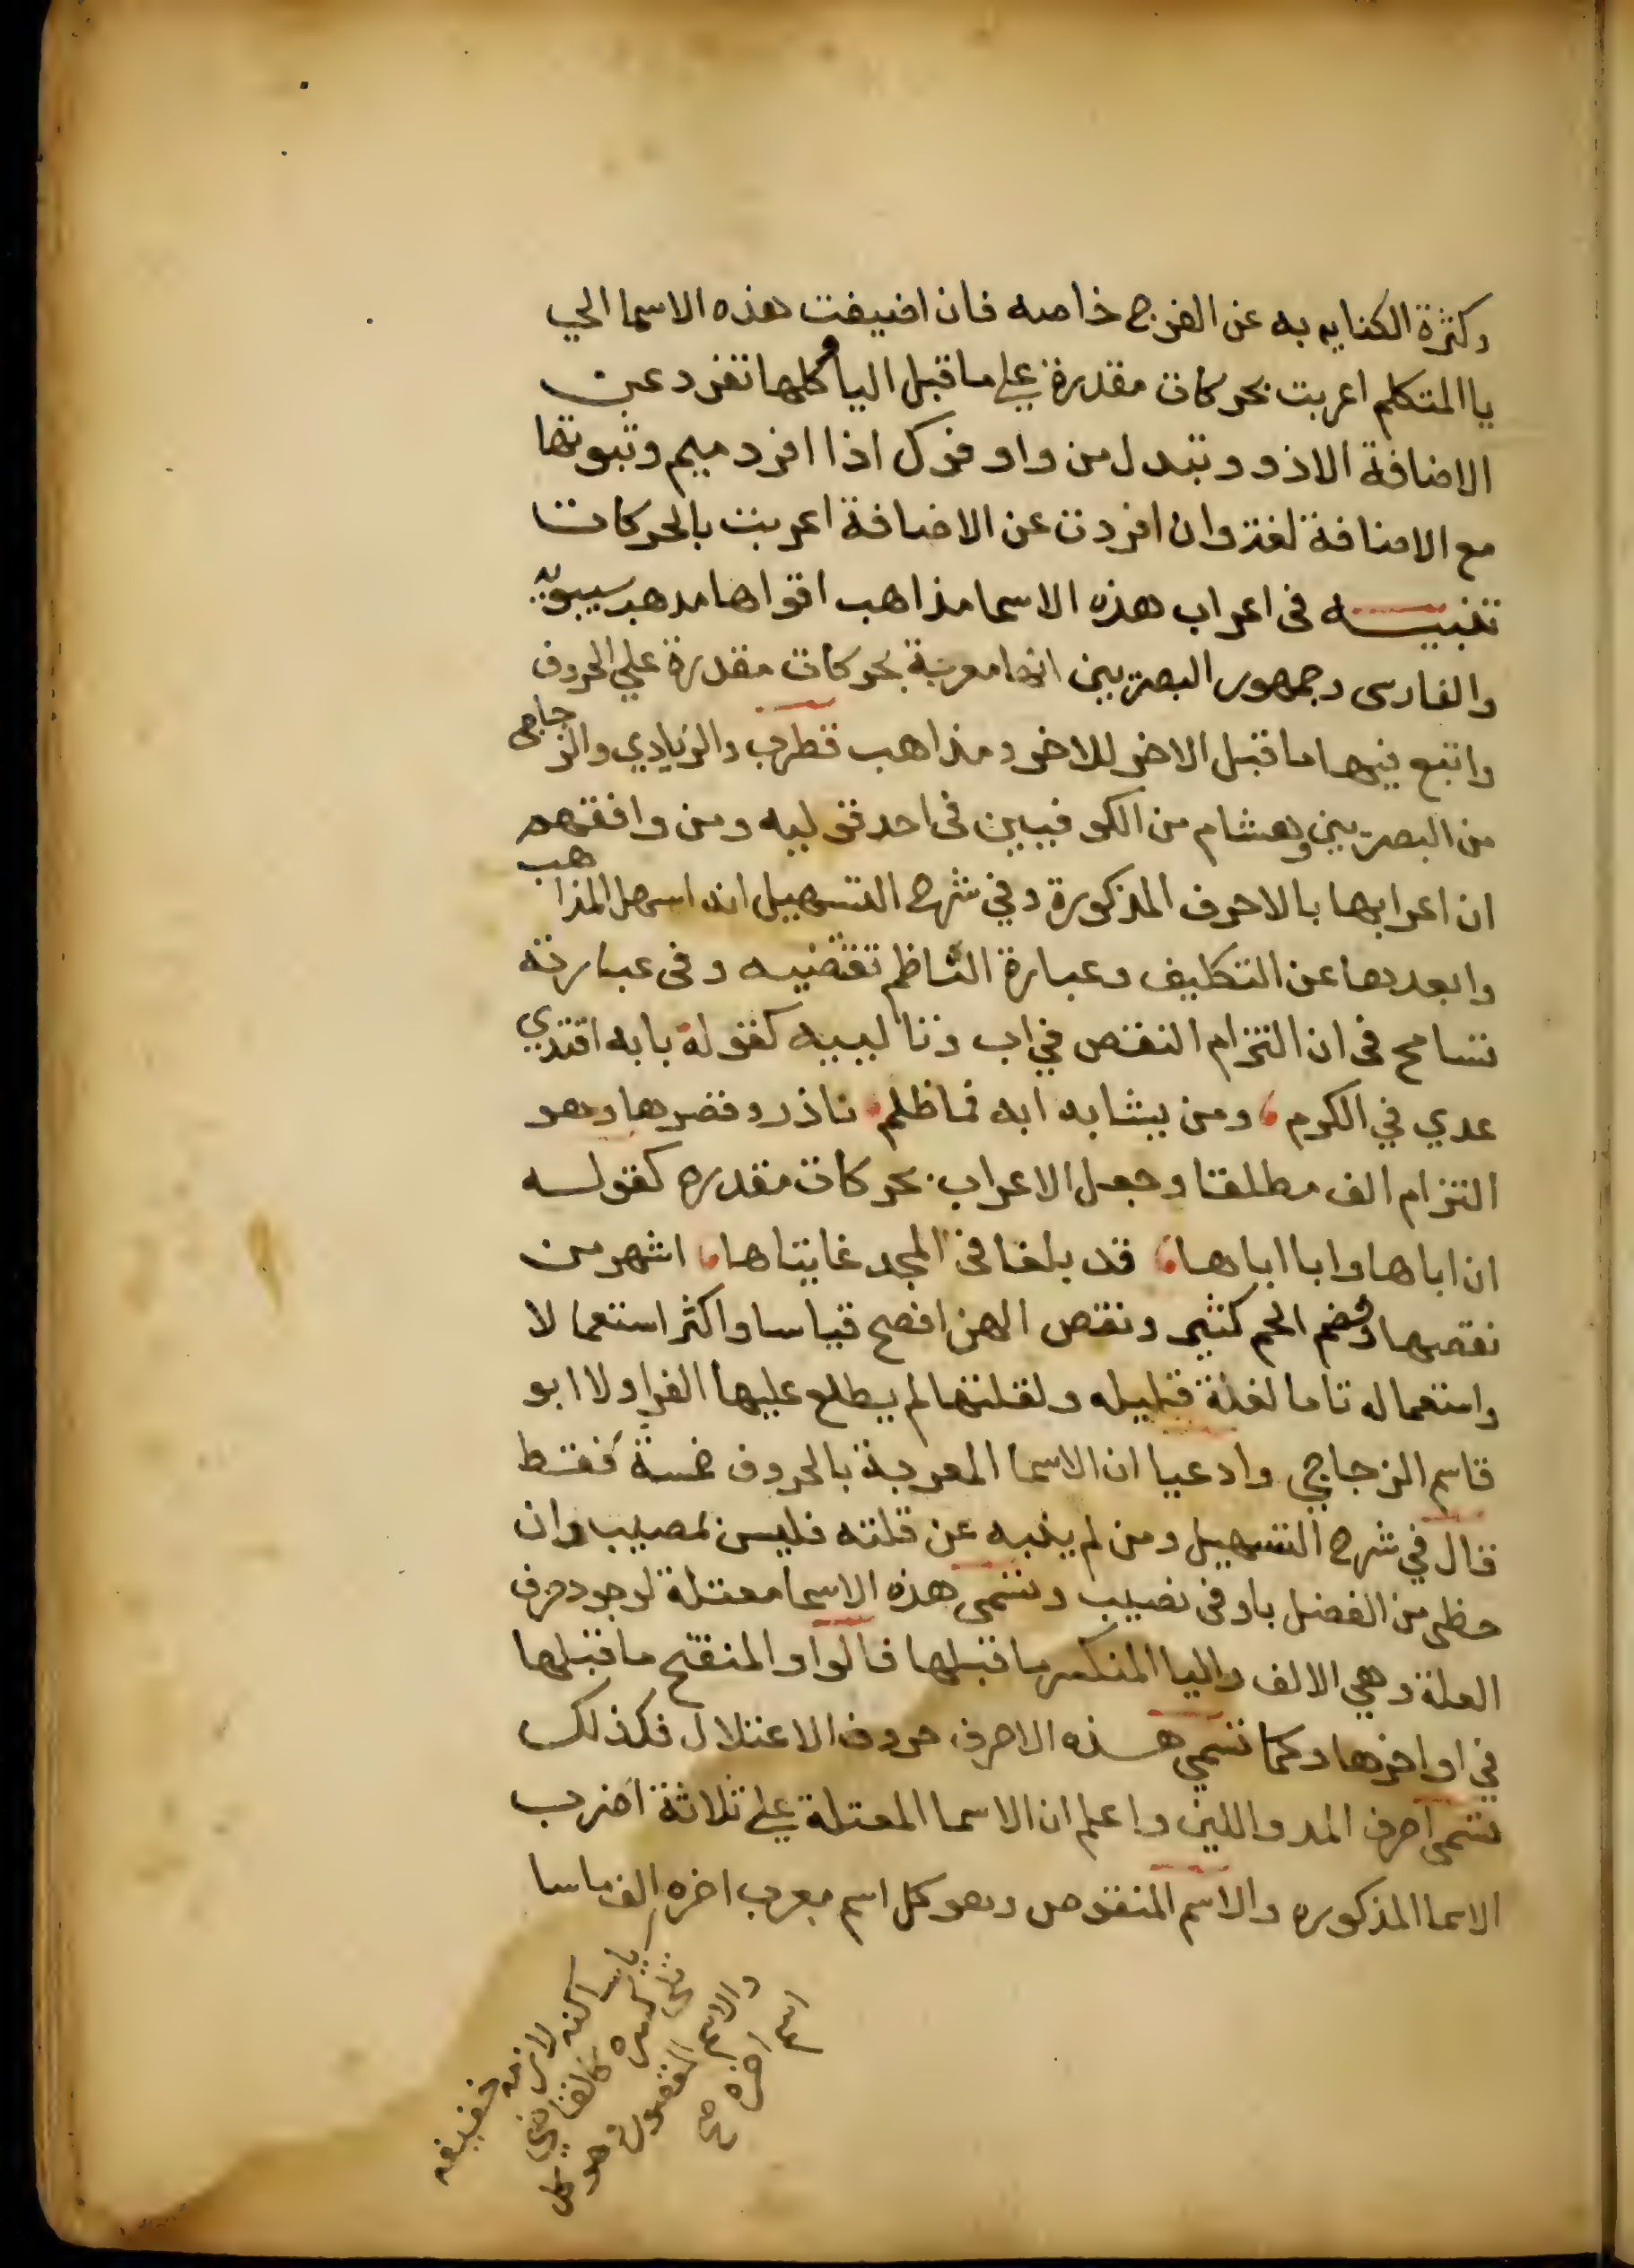 وكثرة الكنايه به عن الفرج خاصه فان اضيفت هذه الاسما الي
يا المتكلم اعربت بحركات مقدرة علي ما قبل اليا وكلها تفرد عن
الاضافة الا ذو وتبدل من واو فوك اذا افرد ميم وثبوتها
مع الاضافة لغة وان افردت عن الاضافة اعربت بالحركات
تنبيه في اعراب هذه الاسما مذاهب اقواها مذهب سيبويه
والفارسى وجمهور البصريين انها معربة بحركات مقدرة علي الحروف
واتبع فيها ما قبل الاخر للاخر ومذاهب قطرب والزيادي والزجاجي
من البصريين وهشام من الكوفيين في احد قوليه ومن وافقهم
ان اعرابها بالاحرف المذكورة وفي شرح التسهيل انه اسهل المذاهب
وابعدها عن التكليف وعبارة الناظم تقتضيه وفي عبارته
تسامح في ان التزام النقص في اب وتالييه كقوله بابه اقتدي
عدي في الكرم، ومن يشابه ابه فما ظلم، نادر وقصرها وهو
التزام الف مطلقا وجعل الاعراب بحركات مقدره كقوله
ان اباها وابا اباها، قد بلغا في المجد غايتاها، اشهر من
نقصها وضم الحم كثير ونقص الهن افصح قياسا واكثر استعمالا
واستعماله تاما لغة قليله ولقلتها لم يطلع عليها الفرا ولا ابو
قاسم الزجاجي وادعيا ان الاسما المعربة بالحروف خمسة فقط
قال في شرح التسهيل ومن لم ينبه عن قلته فليس بمصيب وان
حظى من الفضل باوفى نصيب وتسمى هذه الاسما معتلة لوجود حرف
العلة وهي الالف واليا المنكسر ما قبلها فالواو المنفتح ما قبلها
في اواخرها وكما تسمي هذه الاحرف حروف الاعتلال فكذلك
تسمى احرف المد واللين واعلم ان الاسما المعتلة علي ثلاثة اضرب
الاسما المذكوره والاسم المنقوص وهو كل اسم معرب اخره الف ماسا
ياساكنه لازمه خفيفه
تلى كسره كالقاضي
والاسم المقصور وهو كل
اسم اخره صح